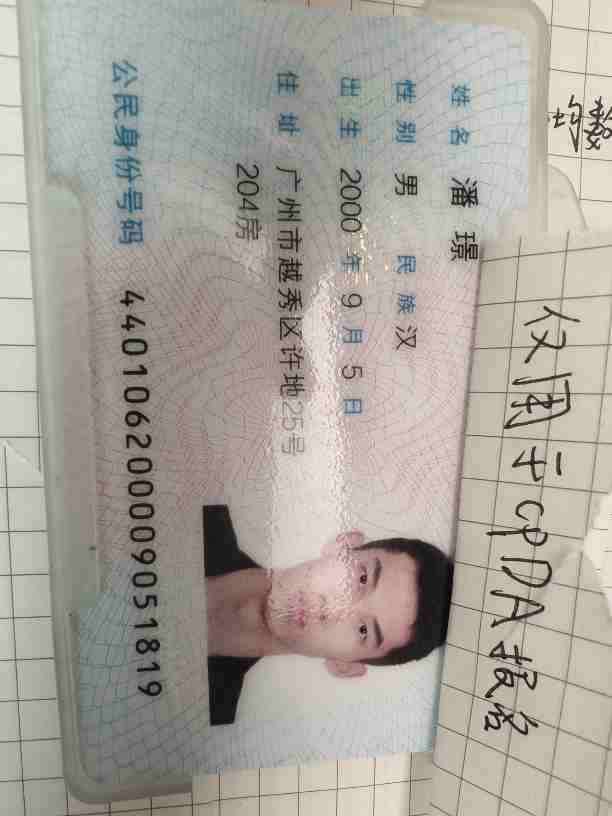 姓名 潘璟
性别 男 民族 汉
出生 2000 年 9 月 5 日
住址 广州市越秀区许地25号
204房
公民身份号码 440106200009051819
仅用于CPDA报名